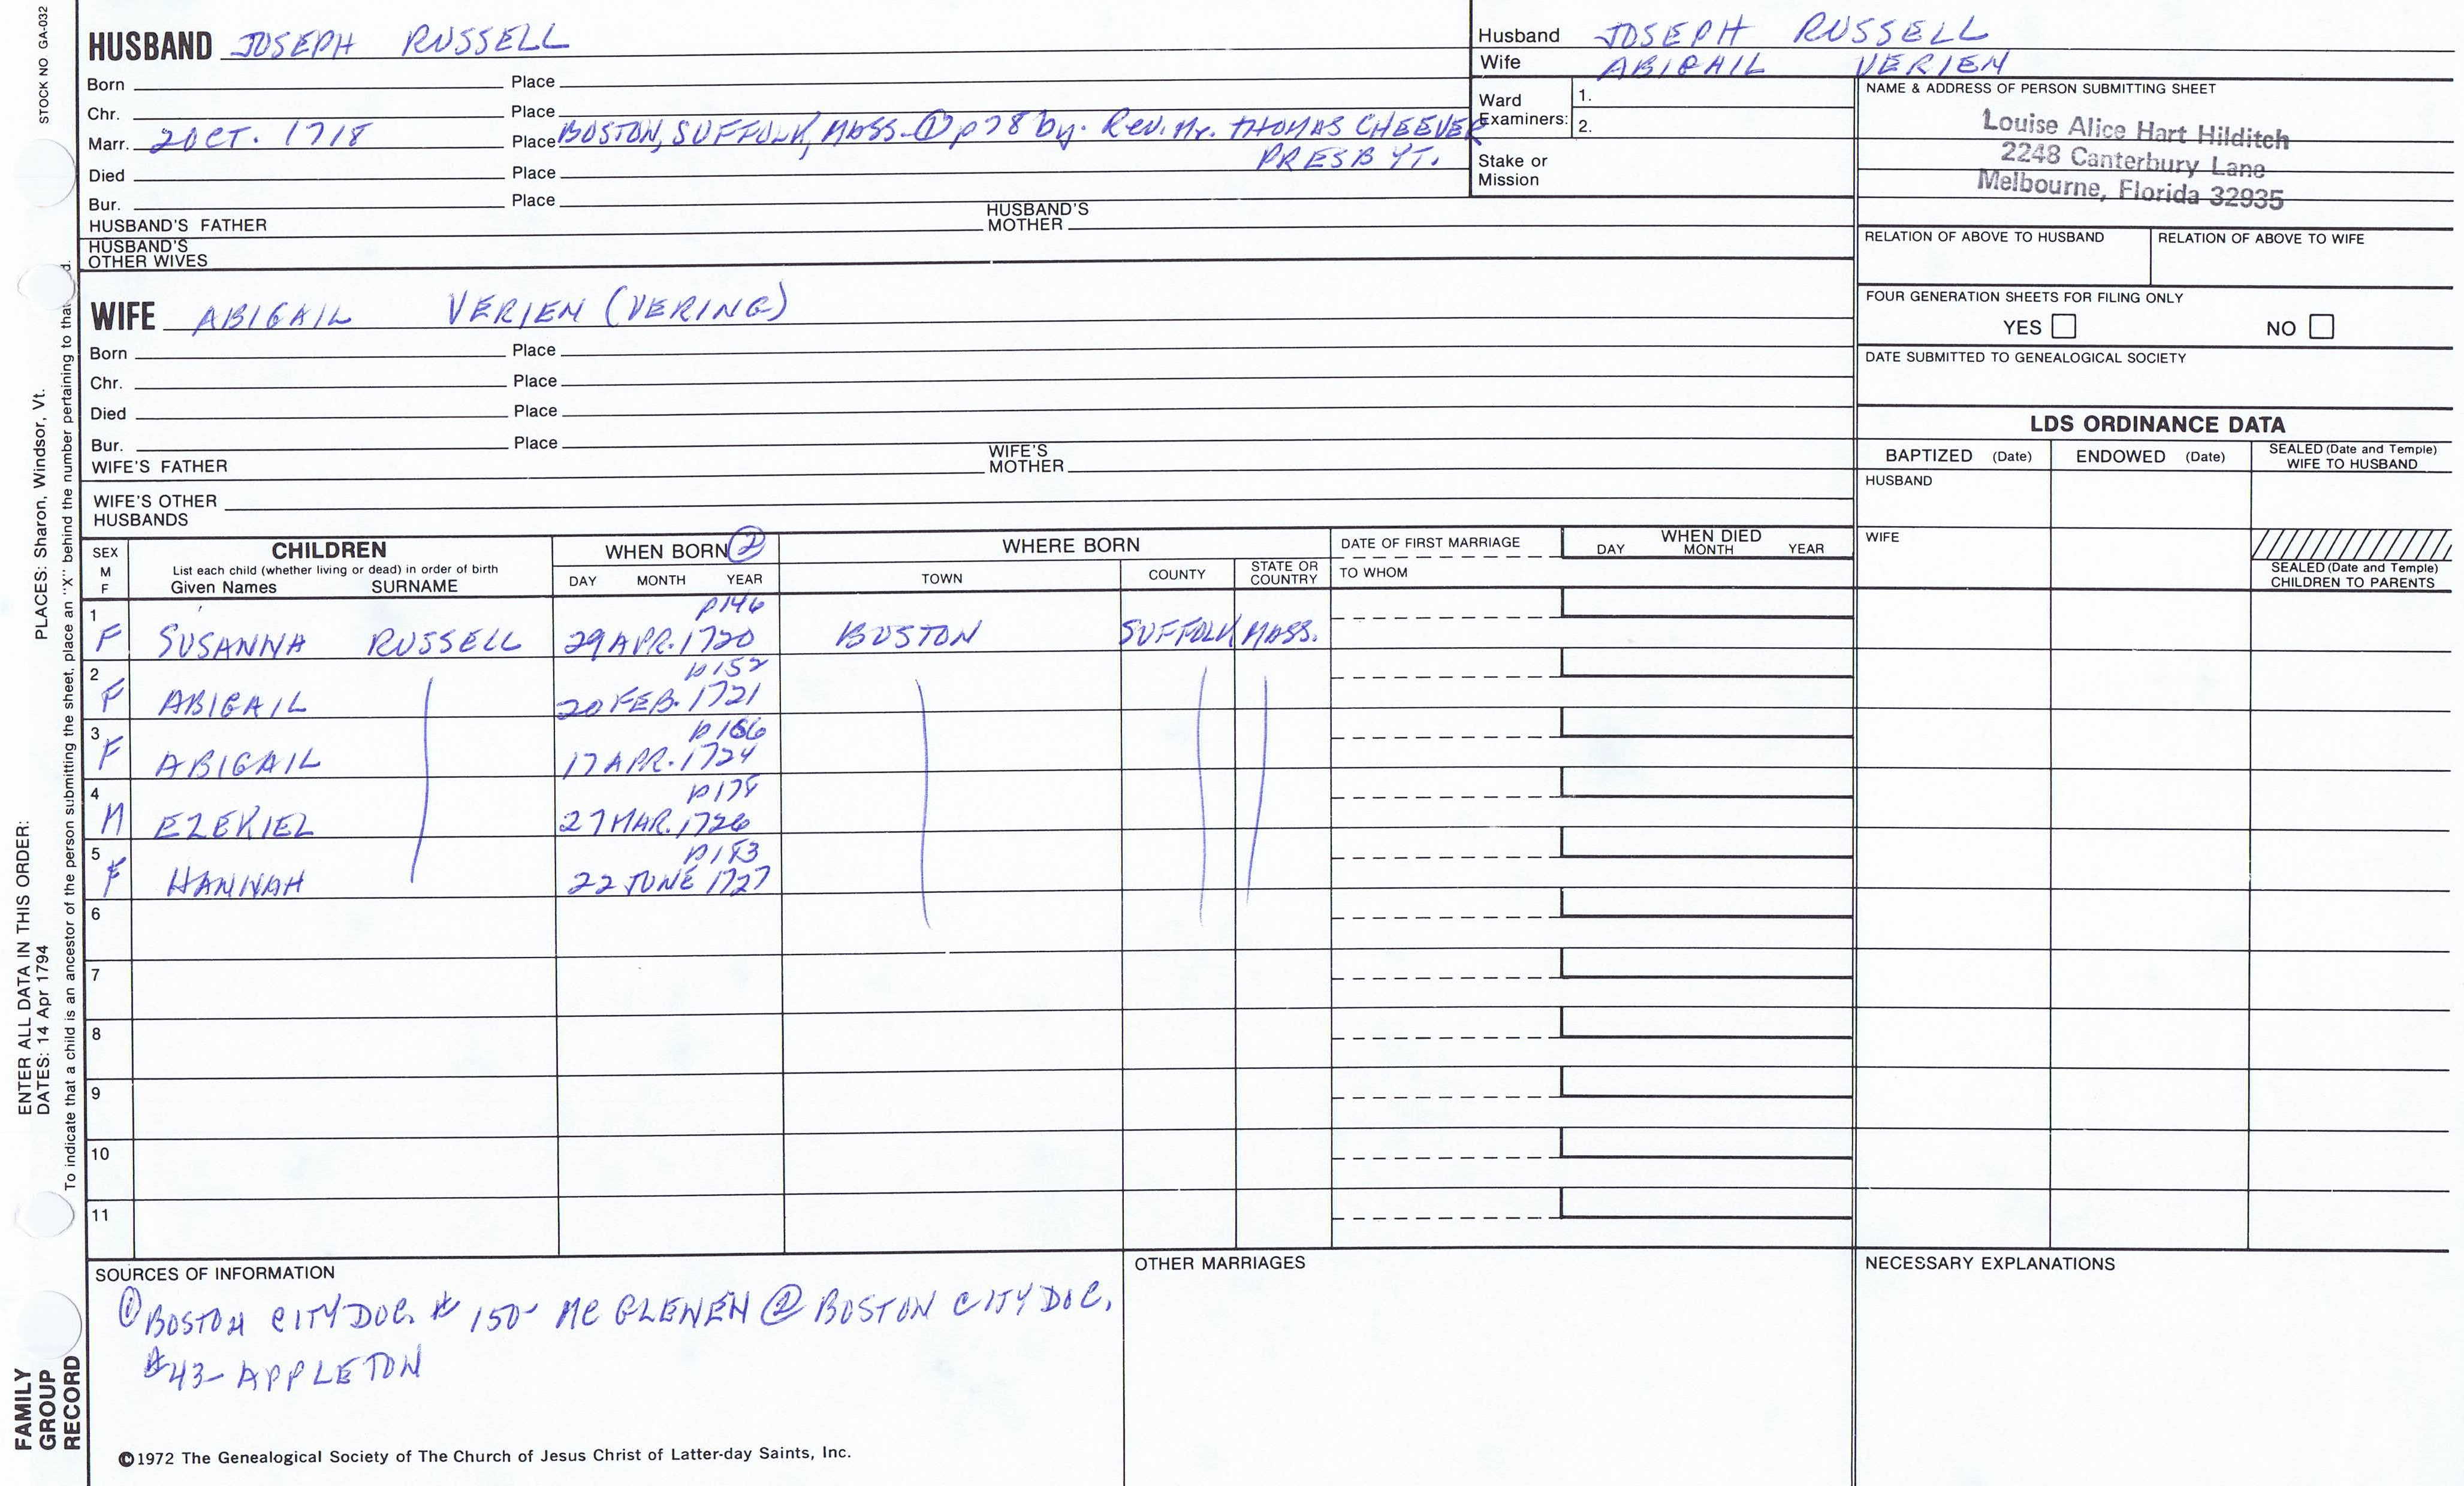 STOCK NO GA-032
HUSBAND JOSEPH RUSSELL
Born Place
Chr. Place
Marr. 2 OCT. 1718 Place BOSTON, SUFFOLK, MASS. ① p78 by. Rev. Mr. THOMAS CHEEVER
PRESBYT.
Died Place
Bur. Place
HUSBAND'S FATHER HUSBAND'S MOTHER
HUSBAND'S OTHER WIVES
Husband JOSEPH RUSSELL
Wife ABIGAIL VERIEN
Ward Examiners: 1.
2.
Stake or Mission
NAME & ADDRESS OF PERSON SUBMITTING SHEET
Louise Alice Hart Hilditch
2248 Canterbury Lane
Melbourne, Florida 32935
RELATION OF ABOVE TO HUSBAND RELATION OF ABOVE TO WIFE
FOUR GENERATION SHEETS FOR FILING ONLY
YES NO
DATE SUBMITTED TO GENEALOGICAL SOCIETY
WIFE ABIGAIL VERIEN (VERING)
Born Place
Chr. Place
Died Place
Bur. Place
WIFE'S FATHER WIFE'S MOTHER
WIFE'S OTHER HUSBANDS
LDS ORDINANCE DATA
BAPTIZED (Date) ENDOWED (Date) SEALED (Date and Temple) WIFE TO HUSBAND
HUSBAND
WIFE
SEALED (Date and Temple) CHILDREN TO PARENTS
SEX M F
CHILDREN
List each child (whether living or dead) in order of birth
Given Names SURNAME
WHEN BORN ②
DAY MONTH YEAR
WHERE BORN
TOWN COUNTY STATE OR COUNTRY
DATE OF FIRST MARRIAGE
TO WHOM
WHEN DIED
DAY MONTH YEAR
p146
1 F SUSANNA RUSSELL 29 APR. 1720 BOSTON SUFFOLK MASS.
p152
2 F ABIGAIL 20 FEB. 1721
p166
3 F ABIGAIL 17 APR. 1724
4 M EZEKIEL 27 MAR. 1726
p183
5 F HANNAH 22 JUNE 1727
6
7
8
9
10
11
SOURCES OF INFORMATION
① BOSTON CITY DOC. # 150- MC GLENEN ② BOSTON CITY DOC.
#43- APPLETON
OTHER MARRIAGES
NECESSARY EXPLANATIONS
©1972 The Genealogical Society of The Church of Jesus Christ of Latter-day Saints, Inc.
FAMILY
GROUP
RECORD
ENTER ALL DATA IN THIS ORDER:
DATES: 14 Apr 1794 PLACES: Sharon, Windsor, Vt.
To indicate that a child is an ancestor of the person submitting the sheet, place an "X" behind the number pertaining to